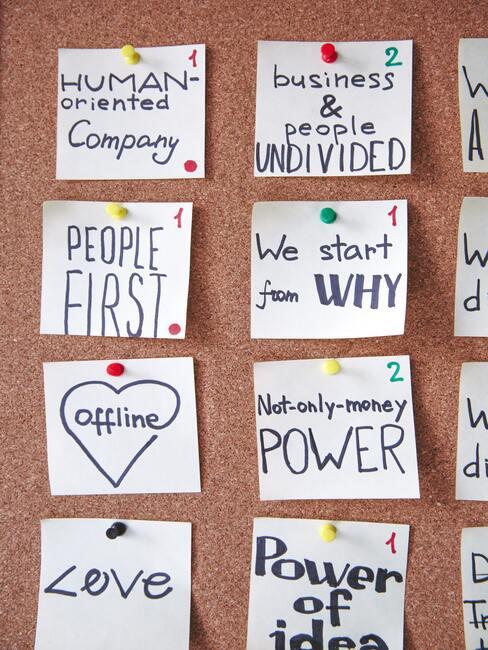 1
HUMAN-
oriented
Company
2
business
&
people
UNDIVIDED
1
PEOPLE
FIRST.
1
We start
from WHY
offline
2
Not-only-money
POWER
Love
1
Power
of
idea